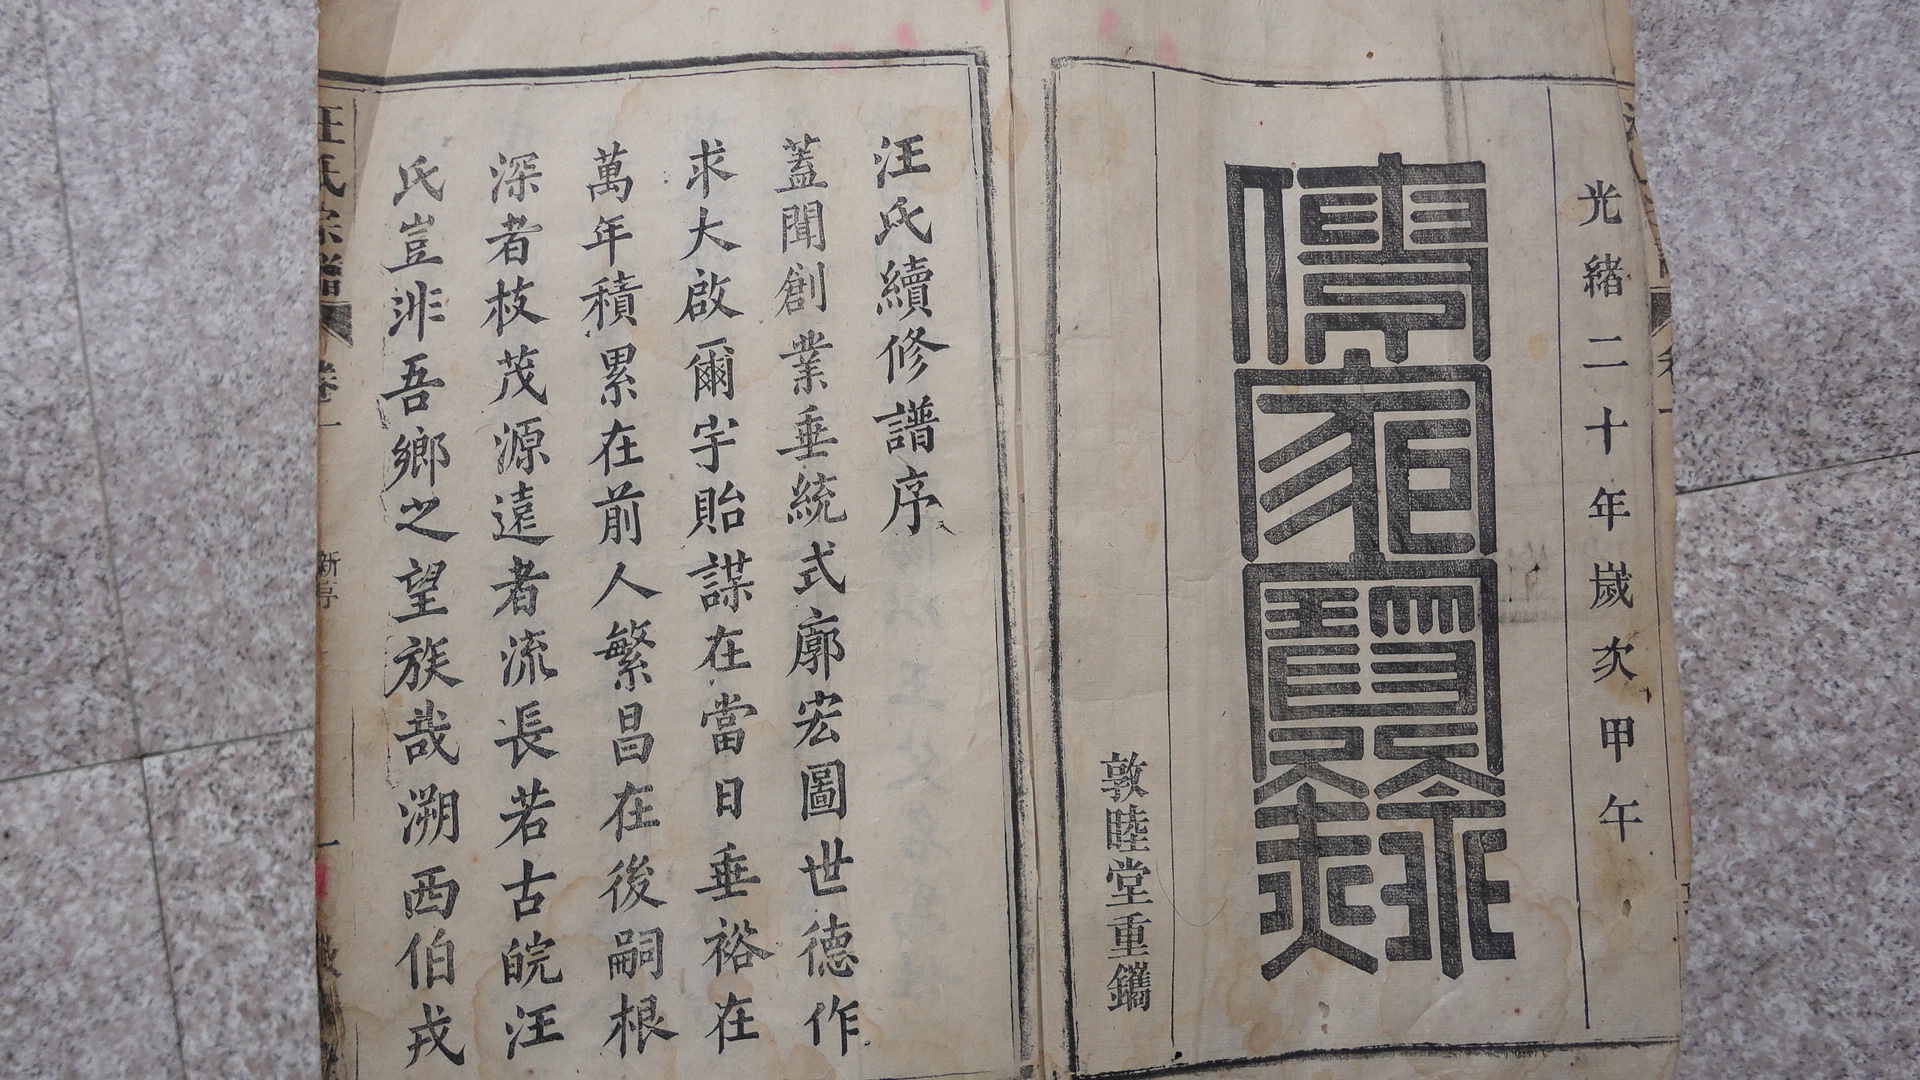 光緒二十年歲次甲午
傳家寶錄
敦睦堂重鐫
汪氏續修譜序
蓋聞創業垂統式廓宏圖世德作
求大啟爾宇貽謀在當日垂裕在
萬年積累在前人繁昌在後嗣根
深者枝茂源遠者流長若古皖汪
氏豈非吾鄉之望族哉溯西伯戎
汪氏宗譜 卷一 新亭 一